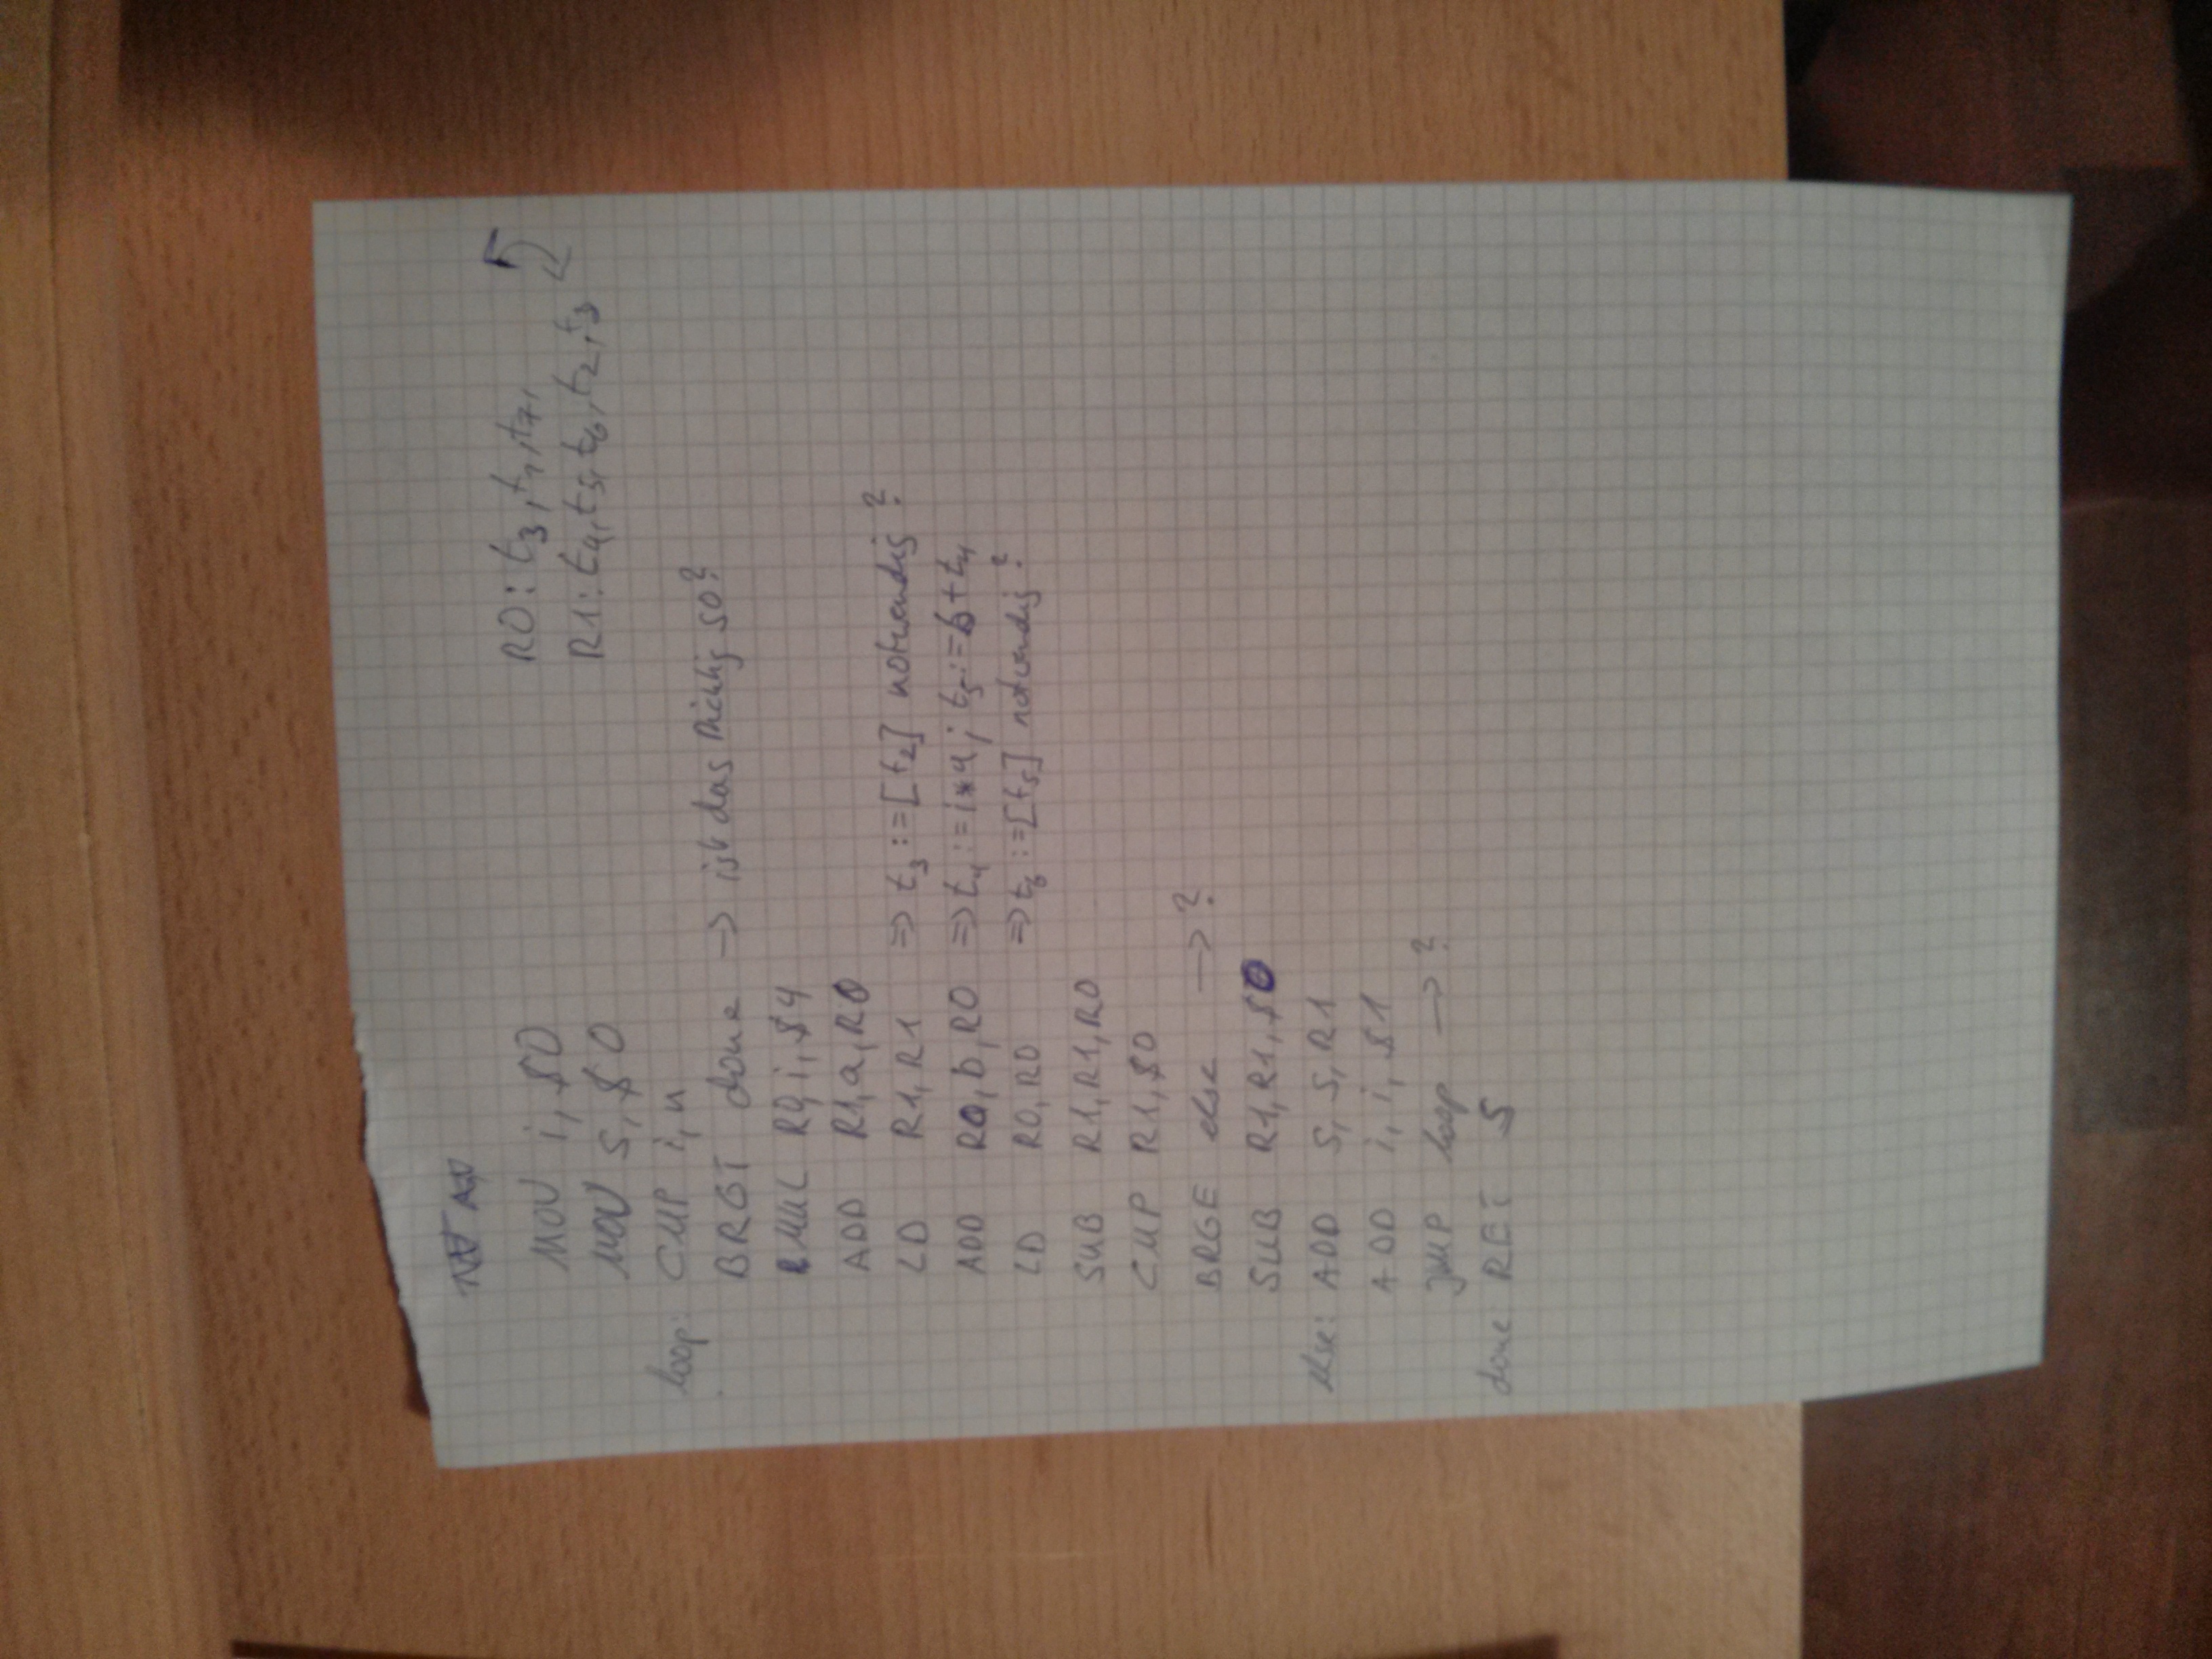 MOV i, $0
MOV s, $0
loop: CMP i, n
BRGT done → ist das Richtig so?
MUL R0, i, $4
ADD R1, a, R0
LD R1, R1 ⇒ t3 := [t2] notwendig?
ADD R0, b, R0 ⇒ t4 := i*4; t5 := b+t4
LD R0, R0 ⇒ t6 := [t5] notwendig?
SUB R1, R1, R0
CMP R1, $0
BRGE else → ?
SUB R1, R1, $0
else: ADD s, s, R1
ADD i, i, $1
JMP loop → ?
done RET s
R0: t3, t1, t7,
R1: t4, t5, t6, t2, t3